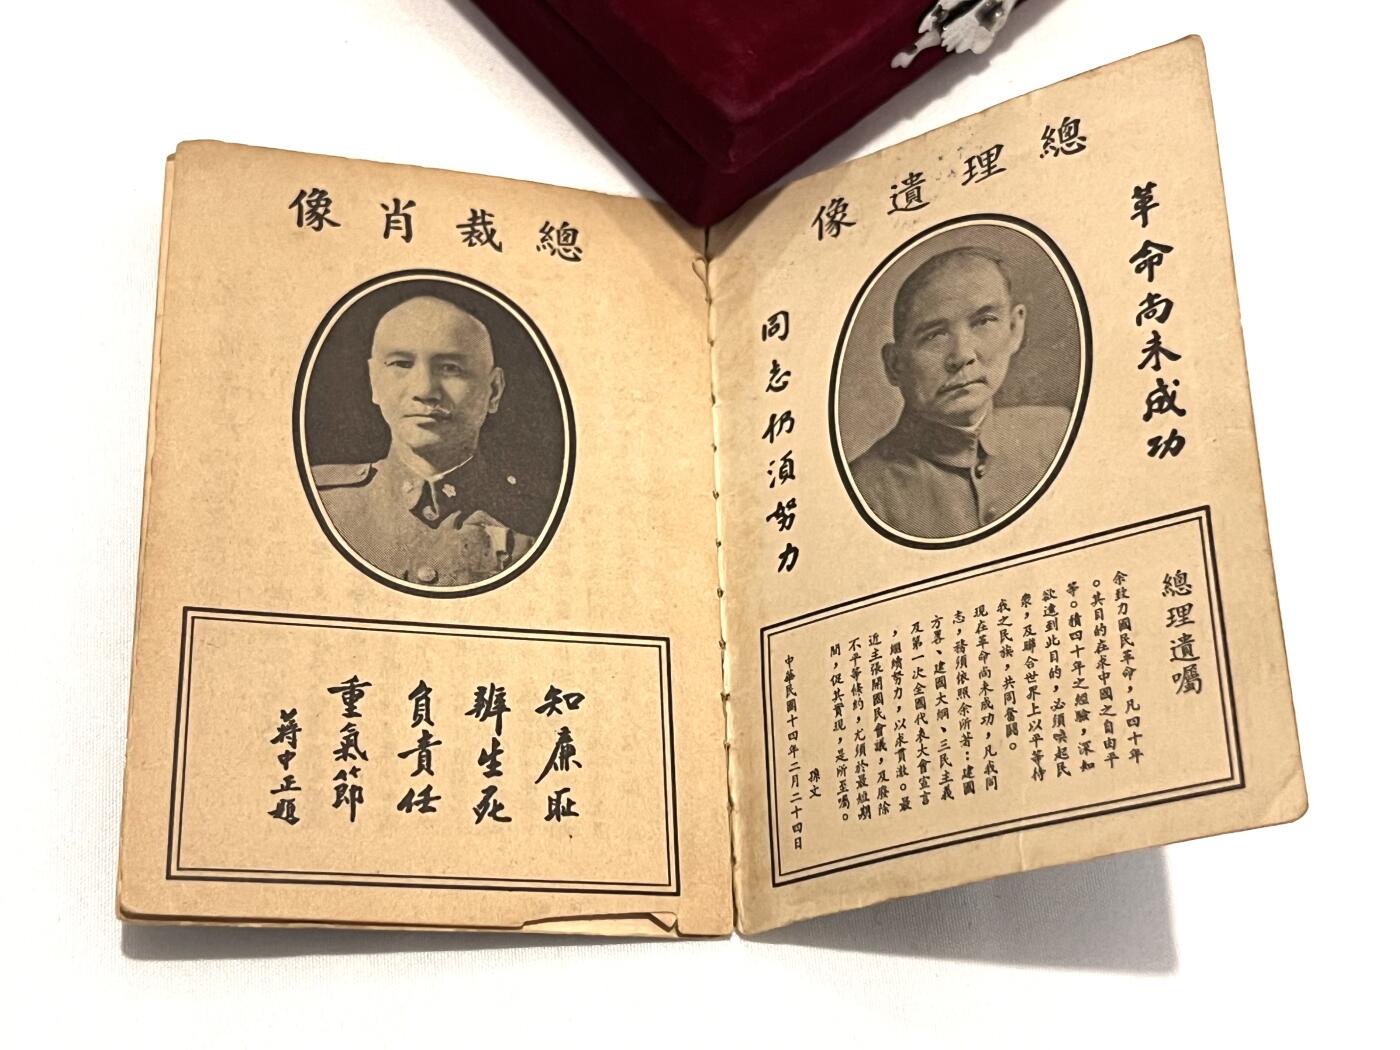 總理遺像
革命尚未成功
同志仍須努力
總理遺囑
余致力國民革命，凡四十年
。其目的在求中國之自由平
等。積四十年之經驗，深知
欲達到此目的，必須喚起民
衆，及聯合世界上以平等待
我之民族，共同奮鬪。
現在革命尚未成功，凡我同
志，務須依照余所著：建國
方畧、建國大綱、三民主義
及第一次全國代表大會宣言
，繼續努力，以求貫澈。最
近主張開國民會議，及廢除
不平等條約，尤須於最短期
間，促其實現，是所至囑。
孫文
中華民國十四年二月二十四日
總裁肖像
知廉恥
辨生死
負責任
重氣節
蔣中正題